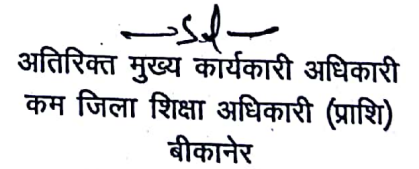 —Sd—
अतिरिक्त मुख्य कार्यकारी अधिकारी
कम जिला शिक्षा अधिकारी (प्राशि)
बीकानेर